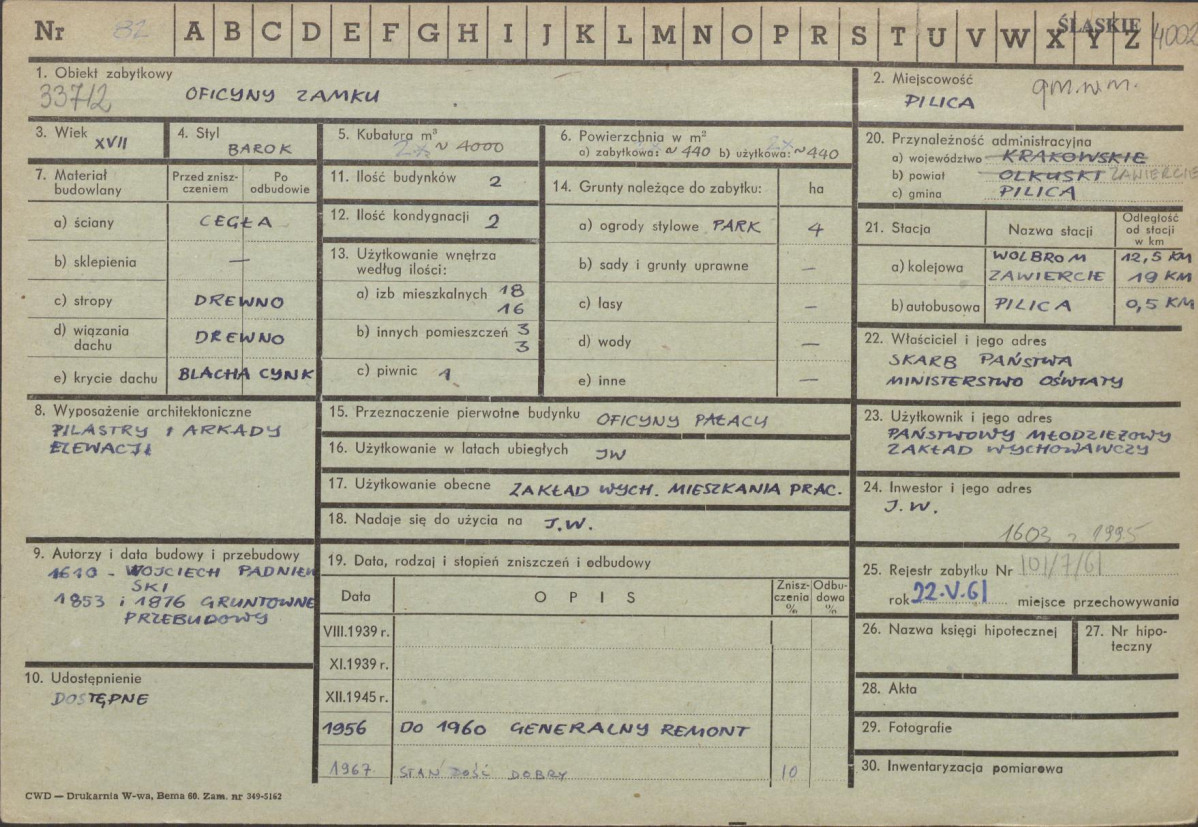 Nr 82 A B C D E F G H I J K L M N O P R S T U V W X Y Z ŚLĄSKIE 4002
1. Obiekt zabytkowy
33712
OFICYNY ZAMKU
2. Miejscowość
gm.w.m.
PILICA
3. Wiek XVII
4. Styl
BAROK
5. Kubatura m³
2x ~ 4000
6. Powierzchnia w m²
a) zabytkowa: ~ 440 b) użytkowa: ~ 440
20. Przynależność administracyjna
a) województwo KRAKOWSKIE
b) powiat OLKUSKI ZAWIERCIE
c) gmina PILICA
7. Materiał budowlany
Przed zniszczeniem
Po odbudowie
a) ściany CEGŁA
b) sklepienia —
c) stropy DREWNO
d) wiązania dachu DREWNO
e) krycie dachu BLACHA CYNK
11. Ilość budynków 2
12. Ilość kondygnacji 2
13. Użytkowanie wnętrza
według ilości:
a) izb mieszkalnych 18
16
b) innych pomieszczeń 3
3
c) piwnic 1
14. Grunty należące do zabytku: ha
a) ogrody stylowe PARK 4
b) sady i grunty uprawne —
c) lasy —
d) wody —
e) inne —
21. Stacja
Nazwa stacji
Odległość
od stacji
w km
a) kolejowa WOLBROM 12,5 KM
ZAWIERCIE 19 KM
b) autobusowa PILICA 0,5 KM
22. Właściciel i jego adres
SKARB PAŃSTWA
MINISTERSTWO OŚWIATY
8. Wyposażenie architektoniczne
PILASTRY i ARKADY
ELEWACJI
15. Przeznaczenie pierwotne budynku OFICYNY PAŁACU
16. Użytkowanie w latach ubiegłych JW
17. Użytkowanie obecne ZAKŁAD WYCH. MIESZKANIA PRAC.
18. Nadaje się do użycia na J.W.
23. Użytkownik i jego adres
PAŃSTWOWY MŁODZIEŻOWY
ZAKŁAD WYCHOWAWCZY
24. Inwestor i jego adres
J.W.
1603 z 1995
9. Autorzy i data budowy i przebudowy
1610 - WOJCIECH PADNIEW
SKI
1853 i 1876 GRUNTOWNE
PRZEBUDOWY
19. Data, rodzaj i stopień zniszczeń i odbudowy
Data
OPIS
Zniszczenia %
Odbudowa %
VIII.1939 r.
XI.1939 r.
XII.1945 r.
1956 DO 1960 GENERALNY REMONT
1967 STAN DOŚĆ DOBRY 10
25. Rejestr zabytku Nr 101/7/61
rok 22.V.61 miejsce przechowywania
26. Nazwa księgi hipotecznej
27. Nr hipoteczny
10. Udostępnienie
DOSTĘPNE
28. Akta
29. Fotografie
30. Inwentaryzacja pomiarowa
CWD — Drukarnia W-wa, Bema 60. Zam. nr 349-5162